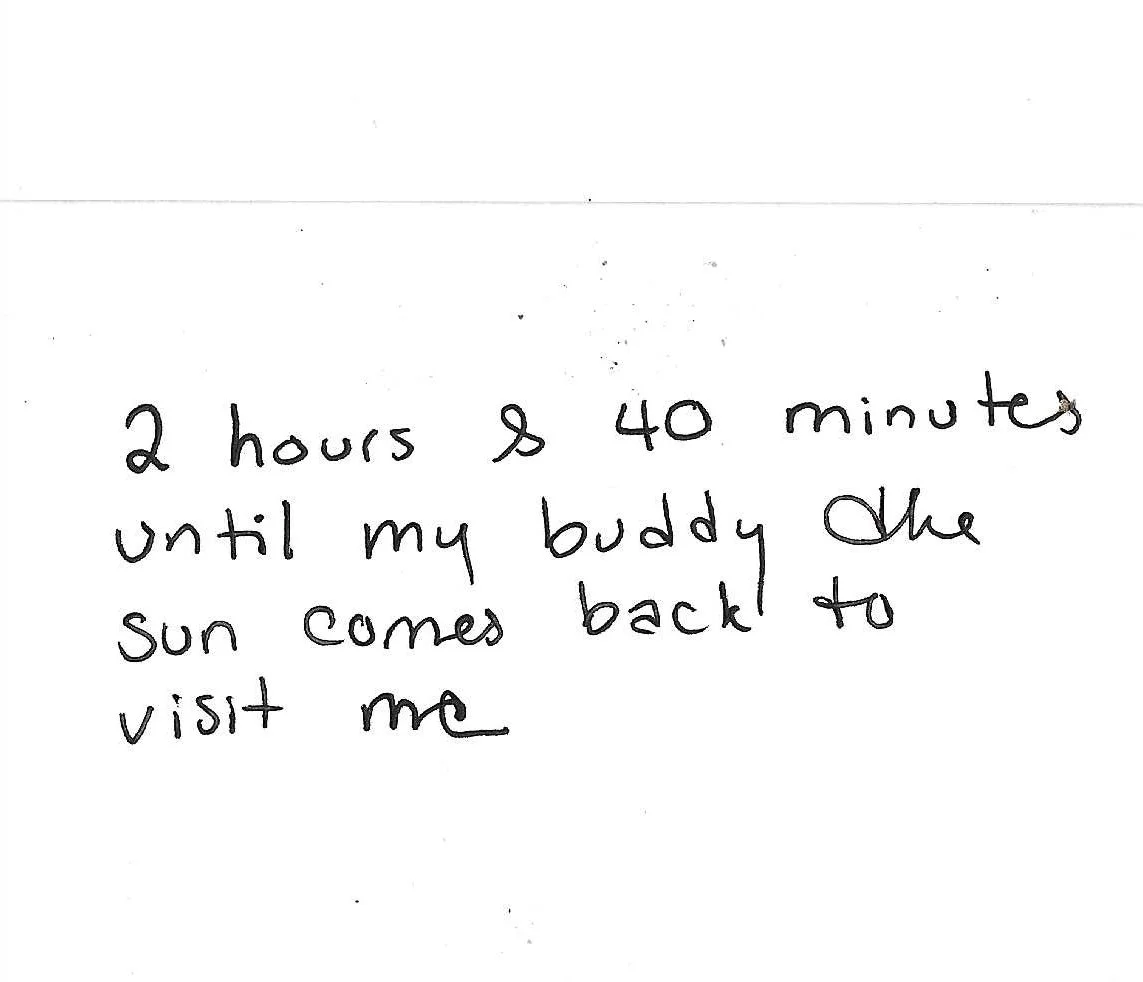 2 hours & 40 minutes
until my buddy the
sun comes back to
visit me